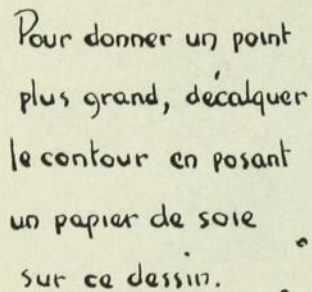 Pour donner un point
plus grand, décalquer
le contour en posant
un papier de soie
sur ce dessin.